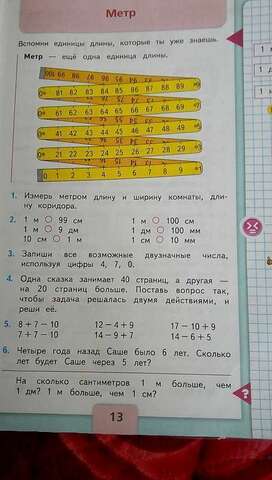 Метр
Вспомни единицы длины, которые ты уже знаешь.
Метр — ещё одна единица длины.
81 82 83 84 85 86 87 88 89
61 62 63 64 65 66 67 68 69
41 42 43 44 45 46 47 48 49
21 22 23 24 25 26 27 28 29
0 1 2 3 4 5 6 7 8 9
1. Измерь метром длину и ширину комнаты, дли-
ну коридора.
2. 1 м ○ 99 см 1 м ○ 100 см
1 м ○ 9 дм 1 дм ○ 100 мм
10 см ○ 1 м 1 см ○ 10 мм
3. Запиши все возможные двузначные числа,
используя цифры 4, 7, 0.
4. Одна сказка занимает 40 страниц, а другая —
на 20 страниц больше. Поставь вопрос так,
чтобы задача решалась двумя действиями, и
реши её.
5. 8 + 7 − 10 12 − 4 + 9 17 − 10 + 9
7 + 7 − 10 14 − 9 + 7 14 − 6 + 5
6. Четыре года назад Саше было 6 лет. Сколько
лет будет Саше через 5 лет?
На сколько сантиметров 1 м больше, чем
1 дм? 1 м больше, чем 1 см?
?
13